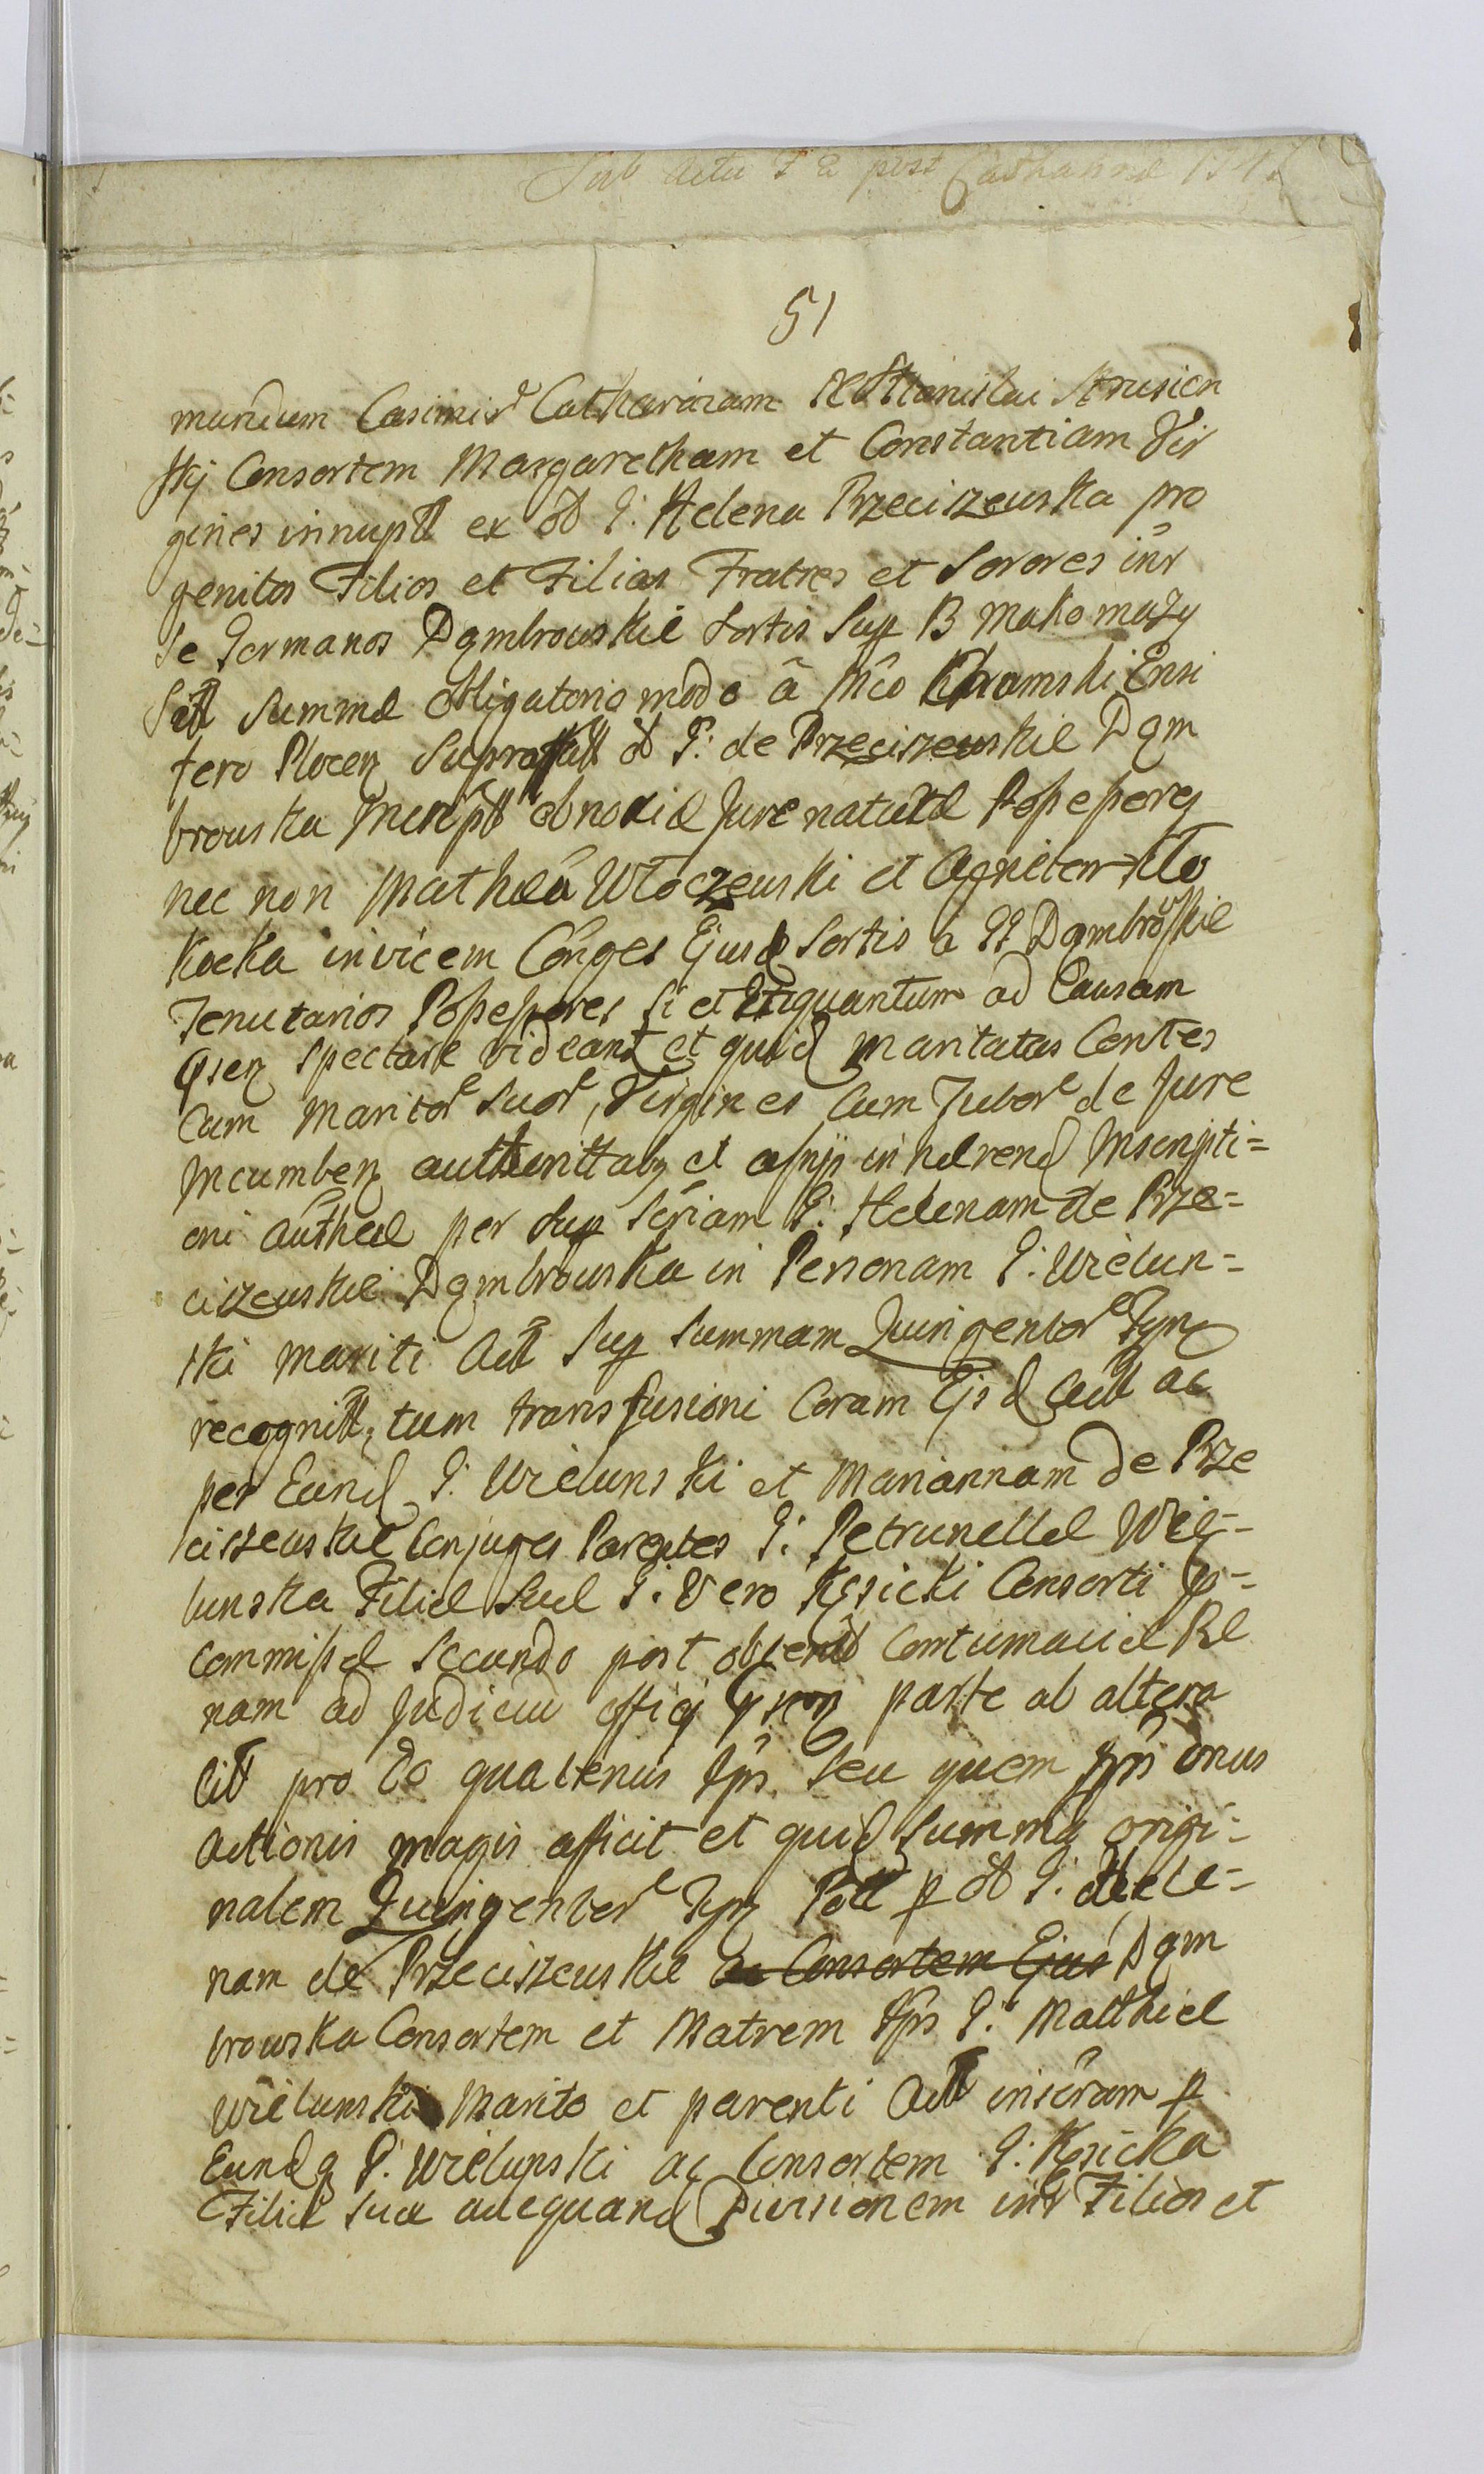 Sub Actu F 2 post Catharinæ 174
51
mundum Casimir Catharinam Stanislai Krusien
skij Consortem Margaretham et Constantiam Vir
gines innupt ex od G. Helena Przeciszewska pro
genitos Filios et Filias Fratres et Sorores inr
se Germanos Dąmbrowskie Sortis Sup B Makomazy
Sitt Summæ obligatorio modo â Mco Chamski Ensi
fero Plocen Suprafatt od G: de Przeciszewskie Dąm
browska Inscrpt obnoxiæ Jure naturæ Possessores
nec non Mathæû Włoczewski et Agnetem Kło
kocka invicem Conges Ejusd Sortis a GG Dąmbrowskie
Tenutarios Possessores Si et inquantum ad Causam
Psen spectare videant et quid maritatas Contes
Cum Maritor Suor, Virgines Cum Tutor de Jure
incumben authoritatbz et assyst inhærend Inscripti=
oni Authæe per Sup Scriam G: Helenam de Prze=
ciszewskie Dąmbrowska in Personam G. Wielun=
ski mariti Act Sup Summam Quingentor Tynf
recognitt, tum transfusioni Coram Ejsd Actt ac
per Eund G: Wielunski et Mariannam de Prze
ciszewskie Conjuges Parentes G: Petrunellæ Wie=
lunska Filiæ Suæ G. vero Kęsicki Consorti
commissæ Secundo post obtent Contumaciæ Pæ
nam ad Judiciû officij psen parte ab altera
Citt pro Eo quatenus Ips seu quem ips onus
actionis magis afficit et quid Summâ origi=
nalem Quingentor Tynf Poll p od G. Hele=
nam de Przeciszewskie ac Consortem Ejus Dąm
browska Consortem et Matrem Ips G: Matthiæ
Wielunski Marito et parenti Act inscram p
Eundq G. Wielunski ac Consortem G: Kęsicka
Filiæ Suæ adequand Divisionem intr Filios et